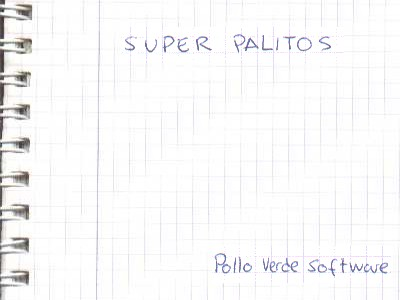 SUPER PALITOS
Pollo Verde Software